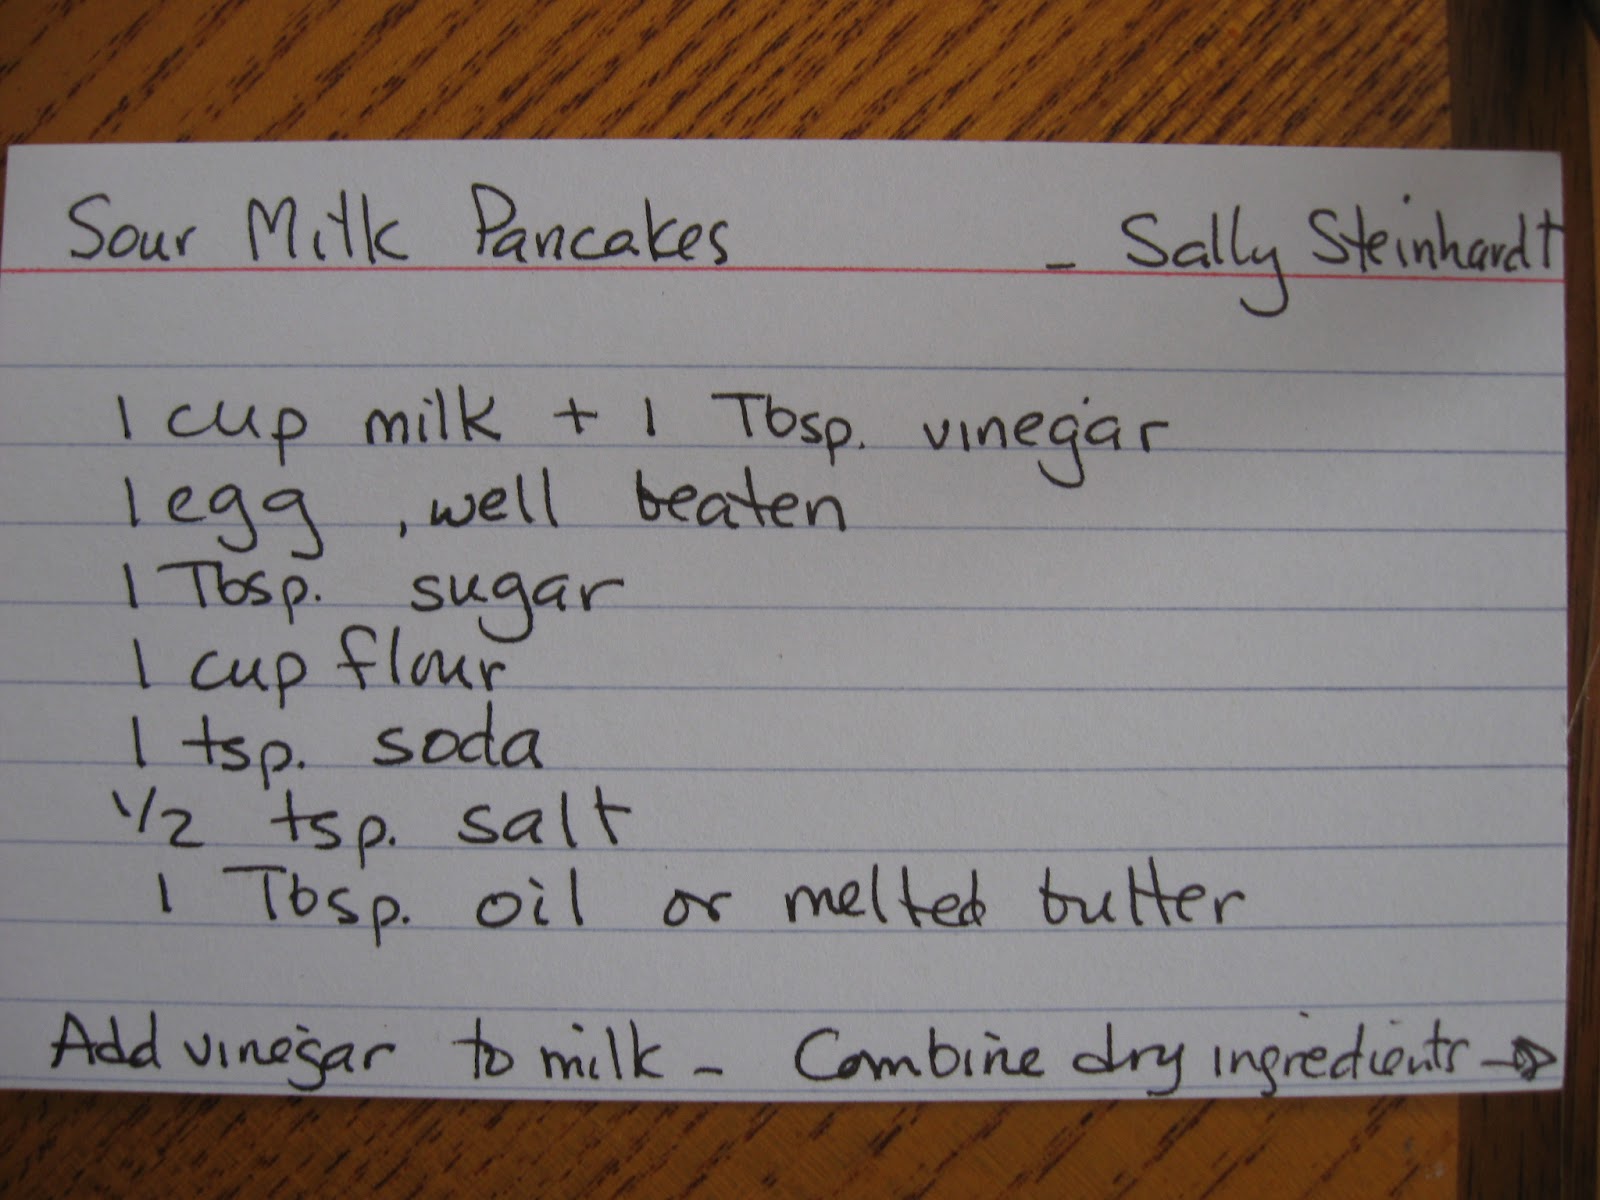 Sour Milk Pancakes - Sally Steinhardt
1 cup milk + 1 Tbsp. vinegar
1 egg , well beaten
1 Tbsp. sugar
1 cup flour
1 tsp. soda
1/2 tsp. salt
1 Tbsp. oil or melted butter
Add vinegar to milk - Combine dry ingredients →